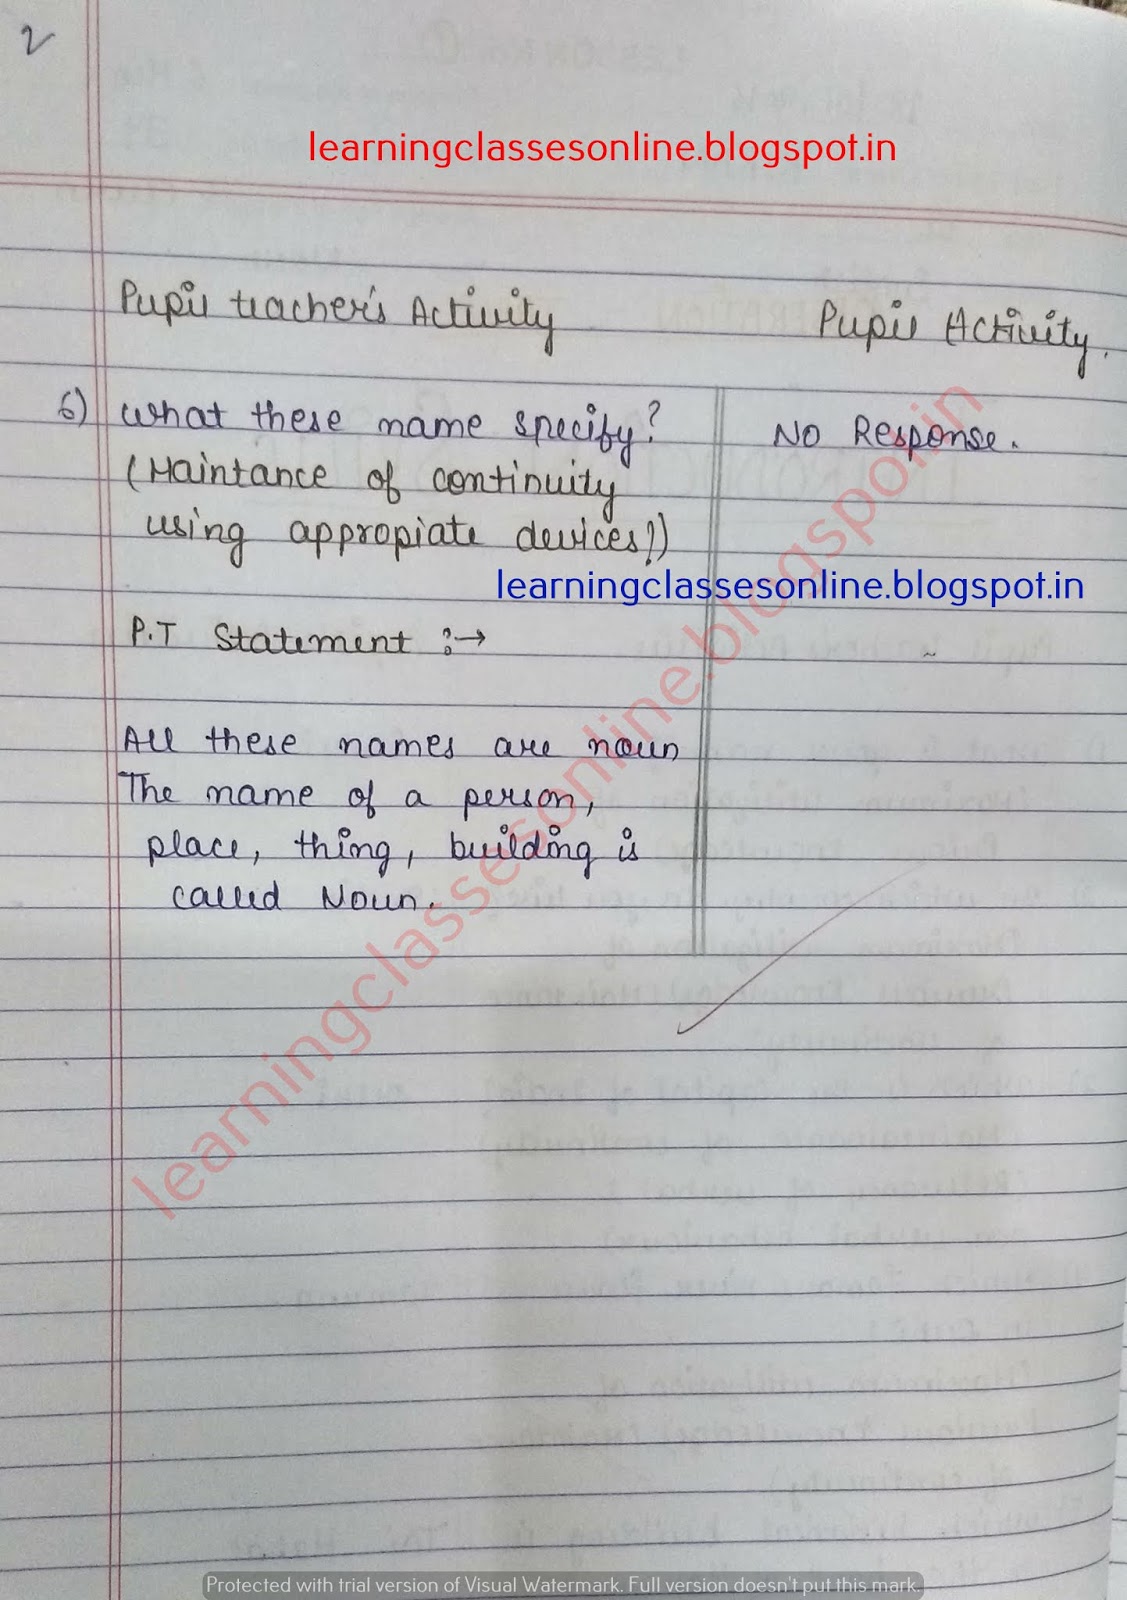 2
learningclassesonline.blogspot.in
Pupil teacher's Activity Pupil Activity.
6) What these name specify? No Response.
(Maintance of continuity
using appropiate devices!)
learningclassesonline.blogspot.in
P.T Statement :→
All these names are noun
The name of a person,
place, thing, building is
called Noun.
learningclassesonline.blogspot.in
Protected with trial version of Visual Watermark. Full version doesn't put this mark.